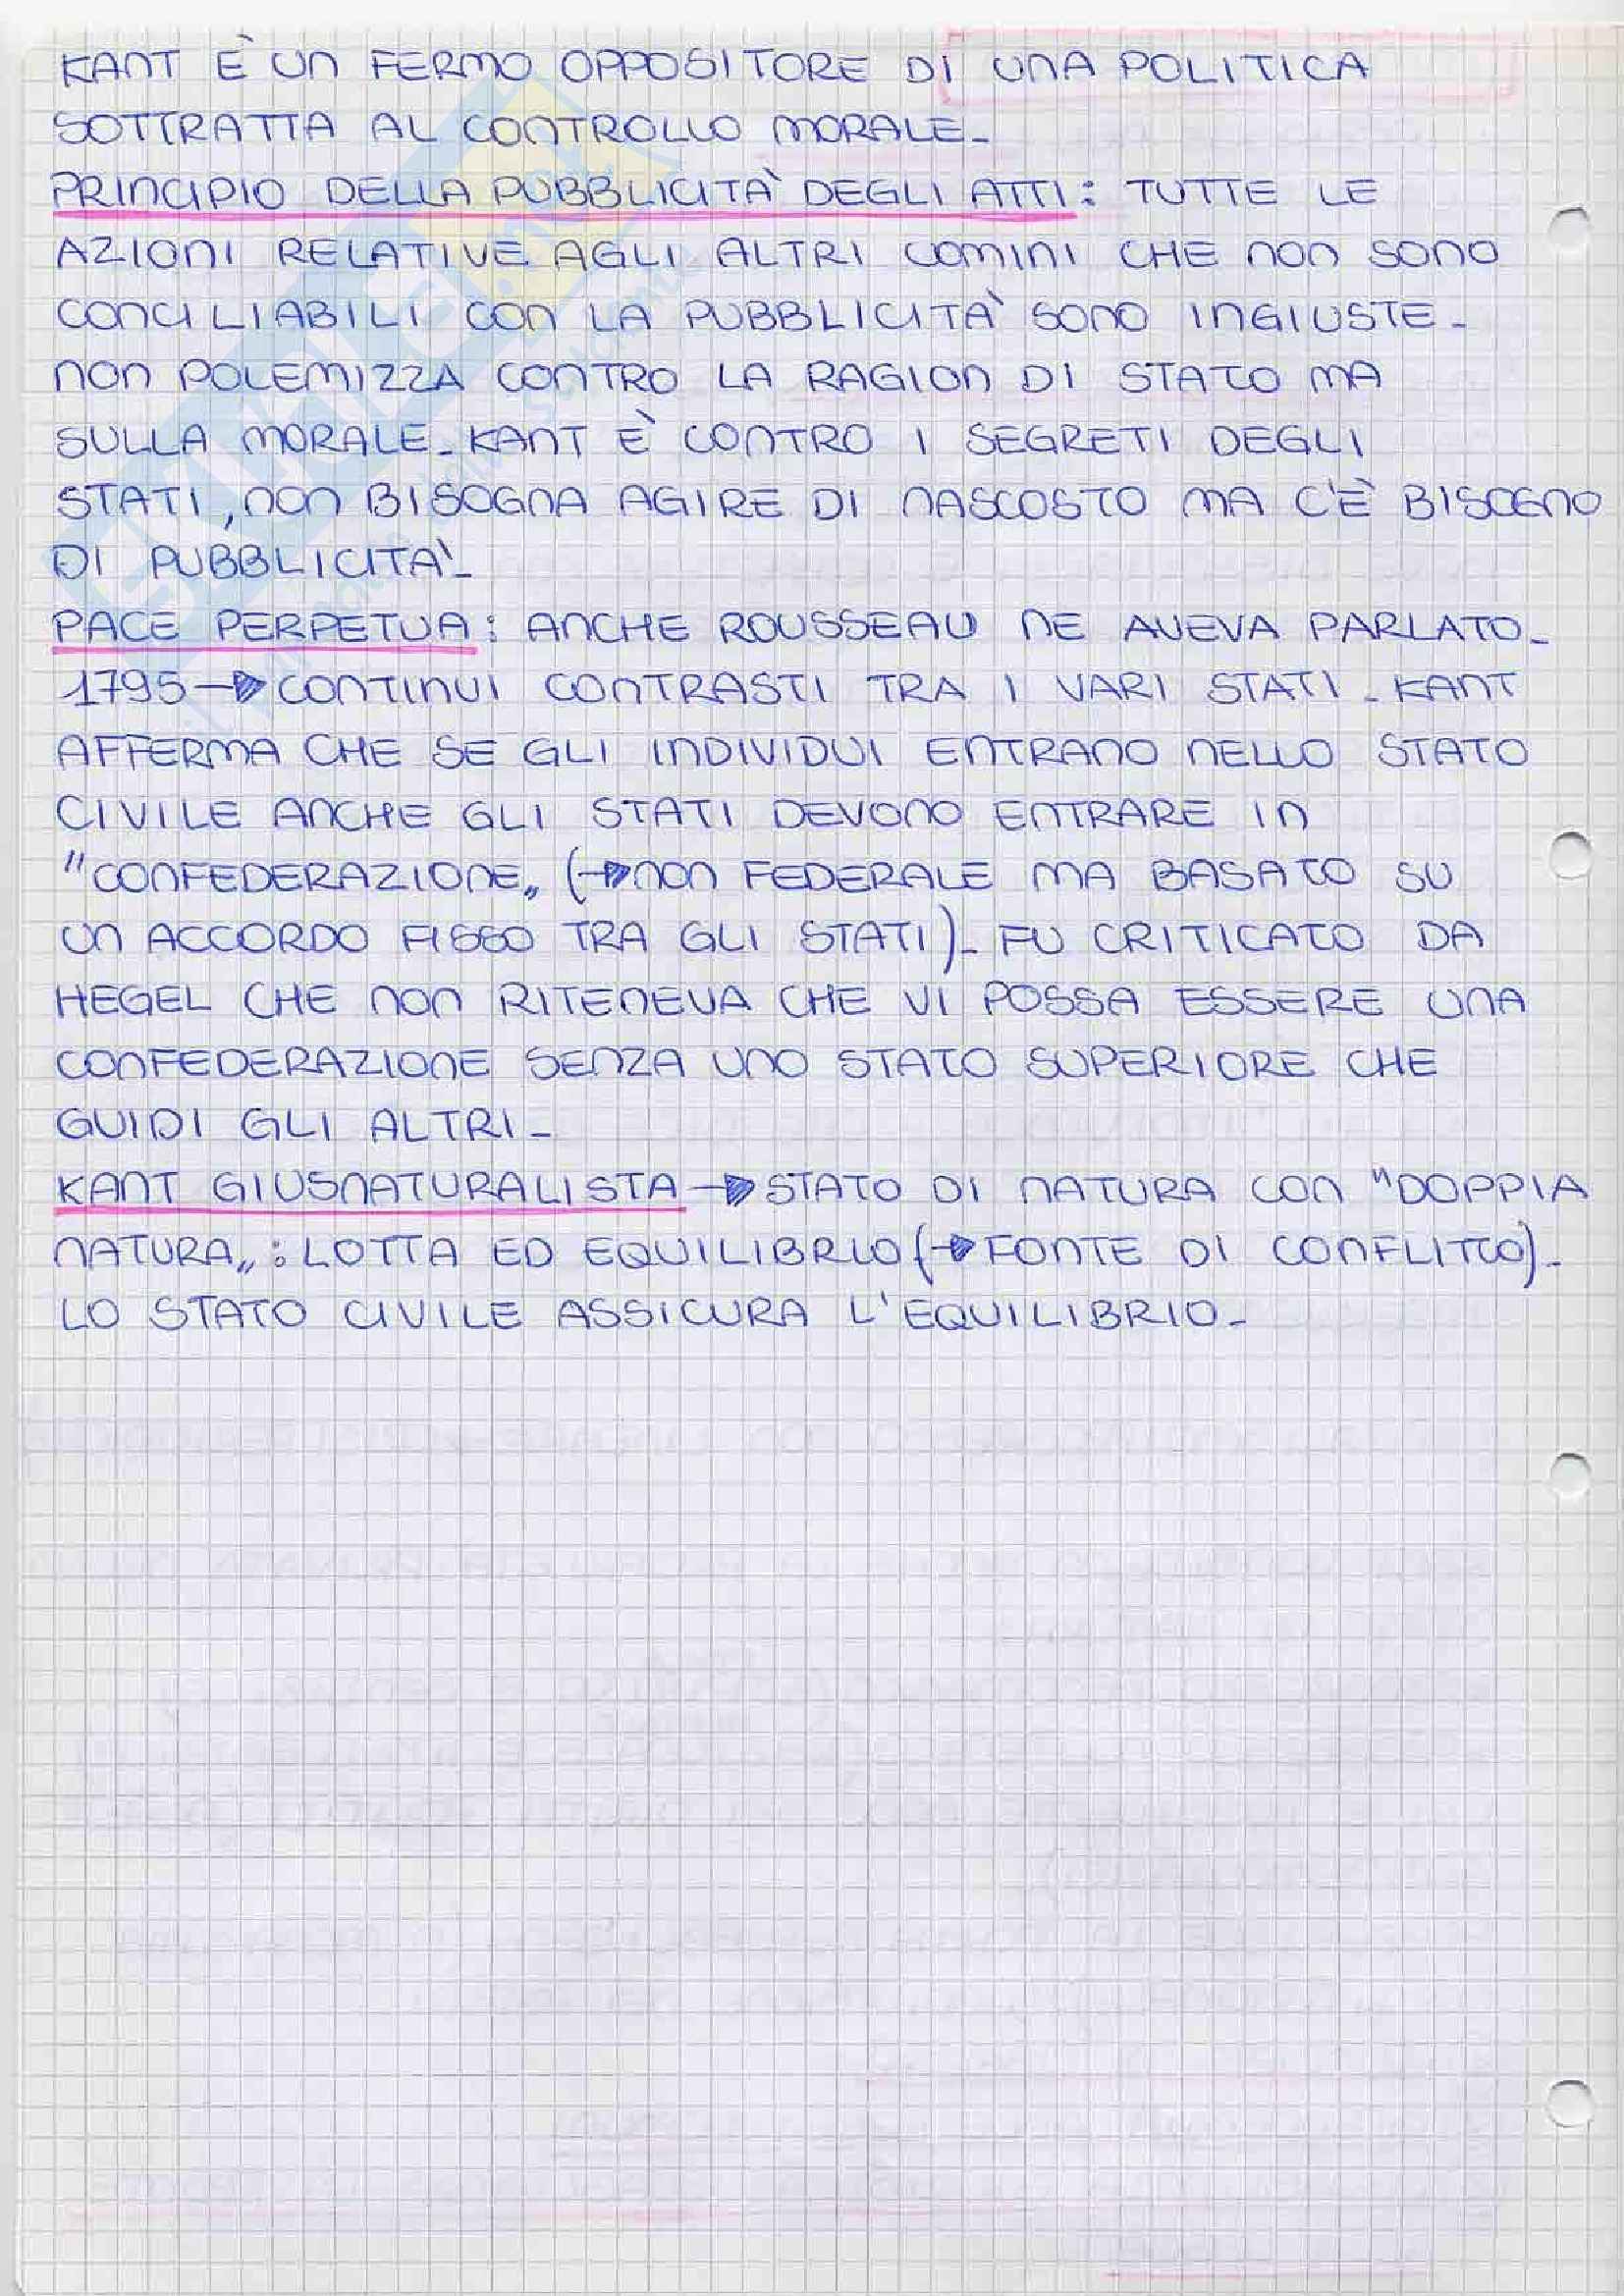 KANT È UN FERMO OPPOSITORE DI UNA POLITICA
SOTTRATTA AL CONTROLLO MORALE_
PRINCIPIO DELLA PUBBLICITÀ DEGLI ATTI: TUTTE LE
AZIONI RELATIVE AGLI ALTRI UOMINI CHE NON SONO
CONCILIABILI CON LA PUBBLICITÀ SONO INGIUSTE_
NON POLEMIZZA CONTRO LA RAGION DI STATO MA
SULLA MORALE_ KANT È CONTRO I SEGRETI DEGLI
STATI, NON BISOGNA AGIRE DI NASCOSTO MA C'È BISOGNO
DI PUBBLICITÀ_
PACE PERPETUA: ANCHE ROUSSEAU NE AVEVA PARLATO_
1795→CONTINUI CONTRASTI TRA I VARI STATI_ KANT
AFFERMA CHE SE GLI INDIVIDUI ENTRANO NELLO STATO
CIVILE ANCHE GLI STATI DEVONO ENTRARE IN
"CONFEDERAZIONE„ (→NON FEDERALE MA BASATO SU
UN ACCORDO FISSO TRA GLI STATI)_ FU CRITICATO DA
HEGEL CHE NON RITENEVA CHE VI POSSA ESSERE UNA
CONFEDERAZIONE SENZA UNO STATO SUPERIORE CHE
GUIDI GLI ALTRI_
KANT GIUSNATURALISTA→STATO DI NATURA CON "DOPPIA
NATURA„: LOTTA ED EQUILIBRIO (→FONTE DI CONFLITTO)_
LO STATO CIVILE ASSICURA L'EQUILIBRIO_